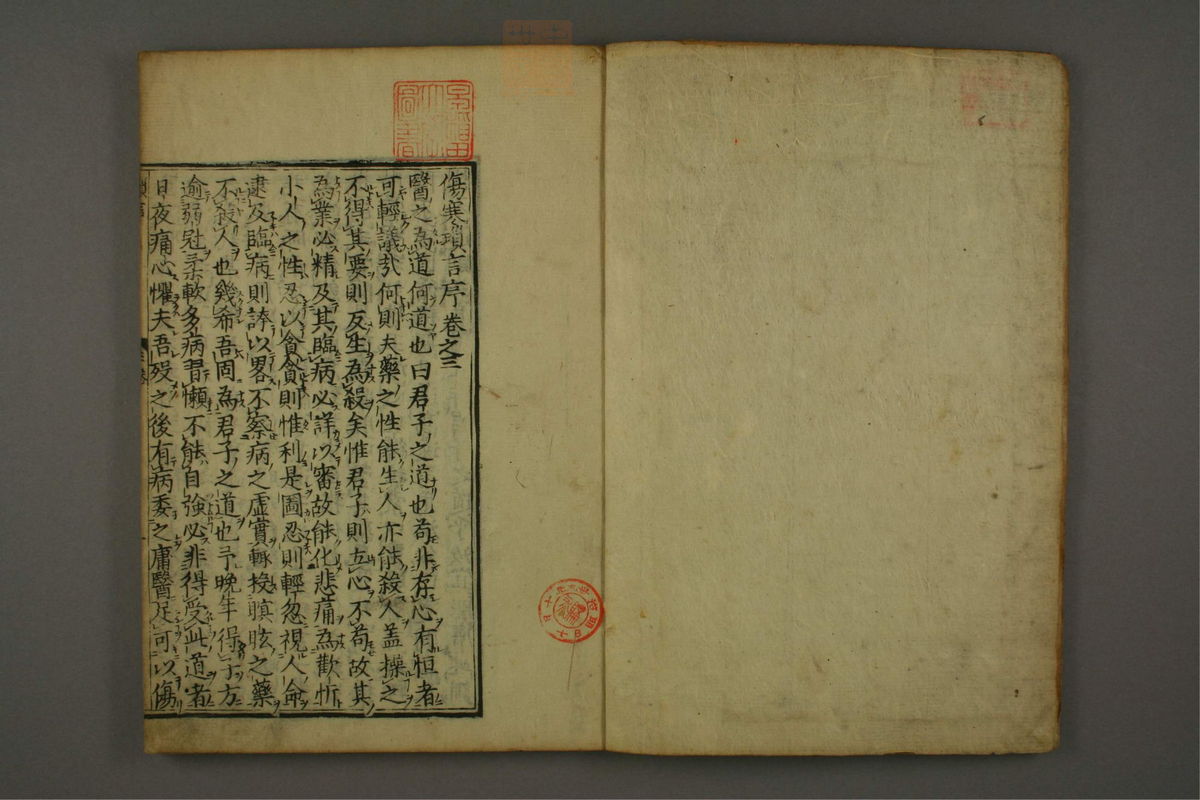 傷寒瑣言序 卷之三
醫之為道何道也曰君子之道也苟非存心有恒者
可輕議哉何則夫藥之性能生人亦能殺人盖操之
不得其要則反生為殺矣惟君子則立心不苟故其
為業必精及其臨病必詳以審故能化悲痛為歡忻
小人之性忍以貪貪則惟利是圖忍則輕忽視人命
逮及臨病則誇以畧不察病之虛實輙投瞑眩之藥
不殺人也幾希吾固為君子之道也予晚年得子方
逾弱冠柔軟多病習懶不能自強必非得受此道者
日夜痛心懼夫吾歿之後有病委之庸醫足可以傷